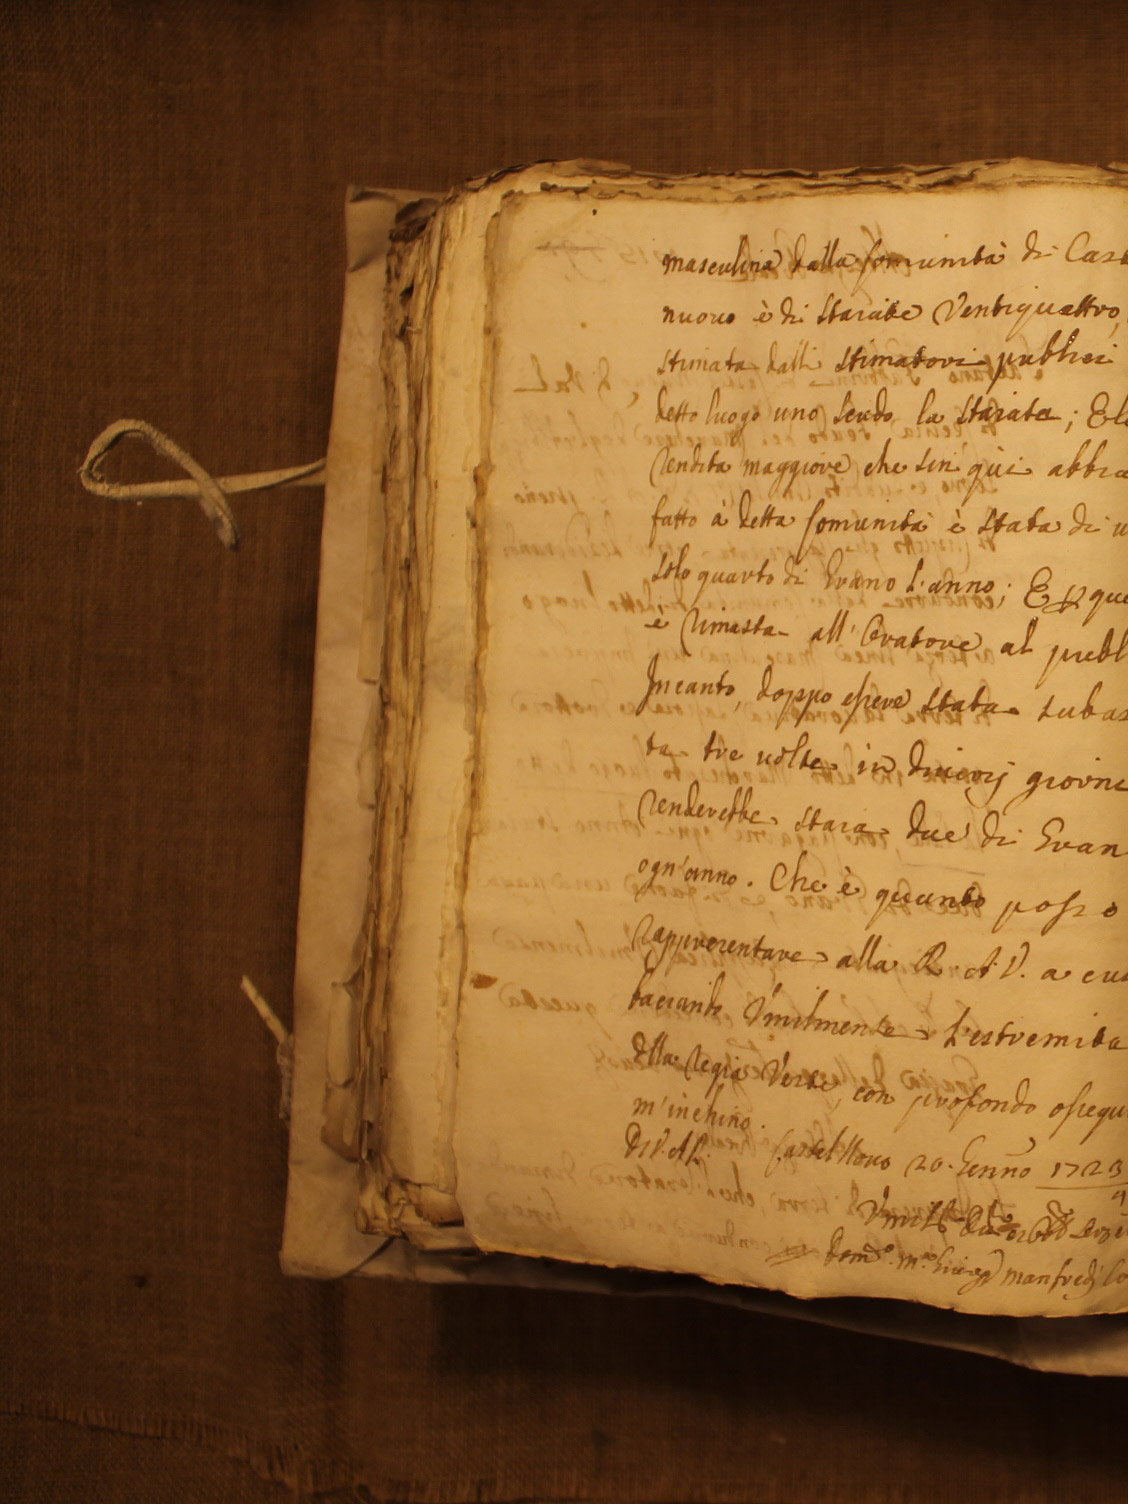 masculina dalla Comunità di Cast
nuovo è di staiate Ventiquattro,
stimata dalli stimatori publici
detto luogo uno scudo la staiata; E la
rendita maggiore che sin' qùi abbia
fatto à detta Comunità è stata di u
solo quarto di Grano l'anno; E
è rimasta all' Oratore al publ
Incanto, doppo essere stata subas
ta tre uolte in diuersi giorni
renderebbe staia due di Gran
ogn'anno. Che è quanto posso
rappresentare alla R. A. V. a cui
baciando Vmilmente l'estremità
della regia Veste con profondo ossequ
m'inchino.
Di V. A. R. Castel Nouo 20. Genn.o 1723
4
Vmil.o
Dom.co manfredi